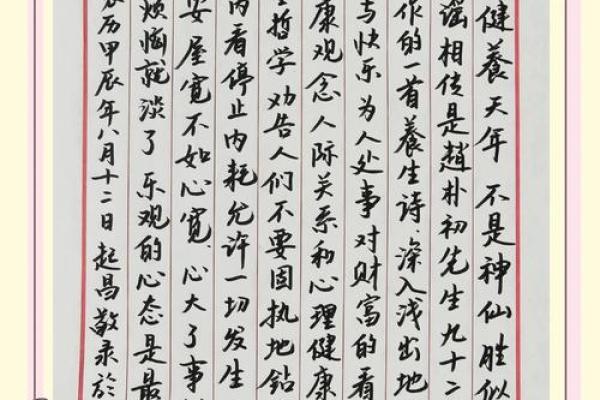 健養天年 不是神仙胜似
谣相传是趙朴初先生九十二
作的一首養生诗.深入浅出地
与快乐 为人处事 对财富的看
康观念人际关系和心理健康
哲学 劝告人们不要固执地钻
内看停止内耗允许一切发生
安屋宽不如心宽 心大了事
烦恼就淡了 乐观的心态是最
历甲辰年八月十二日 起昌敬录於